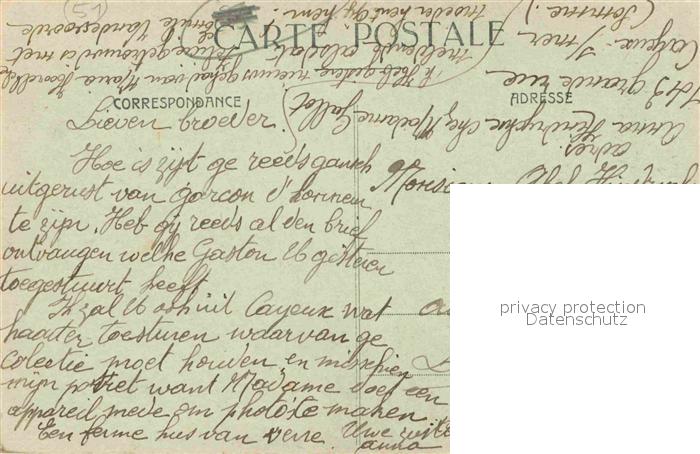 (51)
CARTE POSTALE
CORRESPONDANCE
ADRESSE
Lieven broeder.
Hoe is zijt ge reeds gansch
uitgerust van garcon d'honneur
te zijn. Heb gij reeds al den brief
ontvangen welke Gaston U gisteren
toegestuurt heeft
Ik zal U ook uit Cayeux wat
kaarten toesturen waarvan ge
colectie moet houden en misschien
mijn potret want Madame doet een
appareil mede om photo's te maken
Een ferme kus van verre. Uwe
anna
adres
Anna chez Madame
143 grande rue
Cayeux s/mer
(Somme)
Ik heb gistere nieuws gehad van Maria
privacy protection
Datenschutz